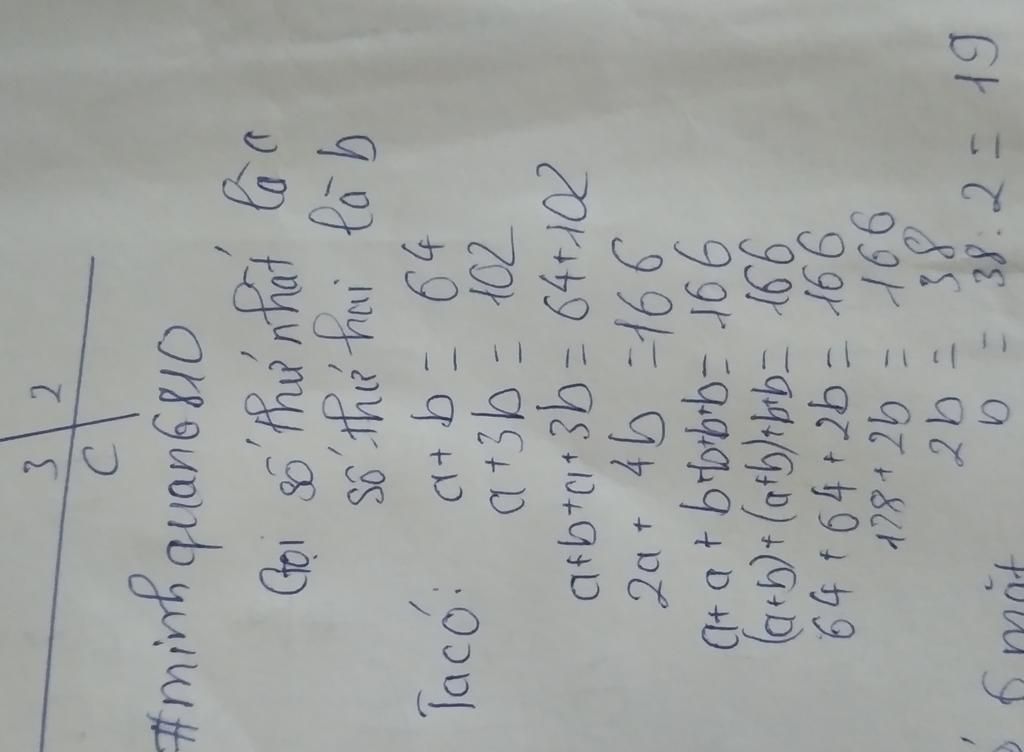 3 2
C
#minhquan6810
Gọi số thứ nhất là a
số thứ hai là b
Tacó: a + b = 64
a + 3b = 102
a+b+a+3b = 64+102
2a + 4b = 166
a+a+b+b+b+b = 166
(a+b)+(a+b)+b+b= 166
64 + 64 + 2b = 166
128 + 2b = 166
2b = 38
b = 38:2 = 19
6 mặt